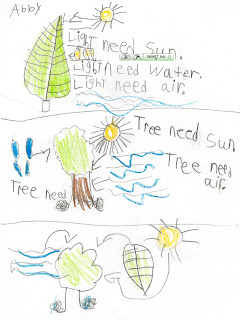 Abby
Light need Sun.
Light need water.
Light need air.
Tree need Sun
Tree need
air.
Tree need